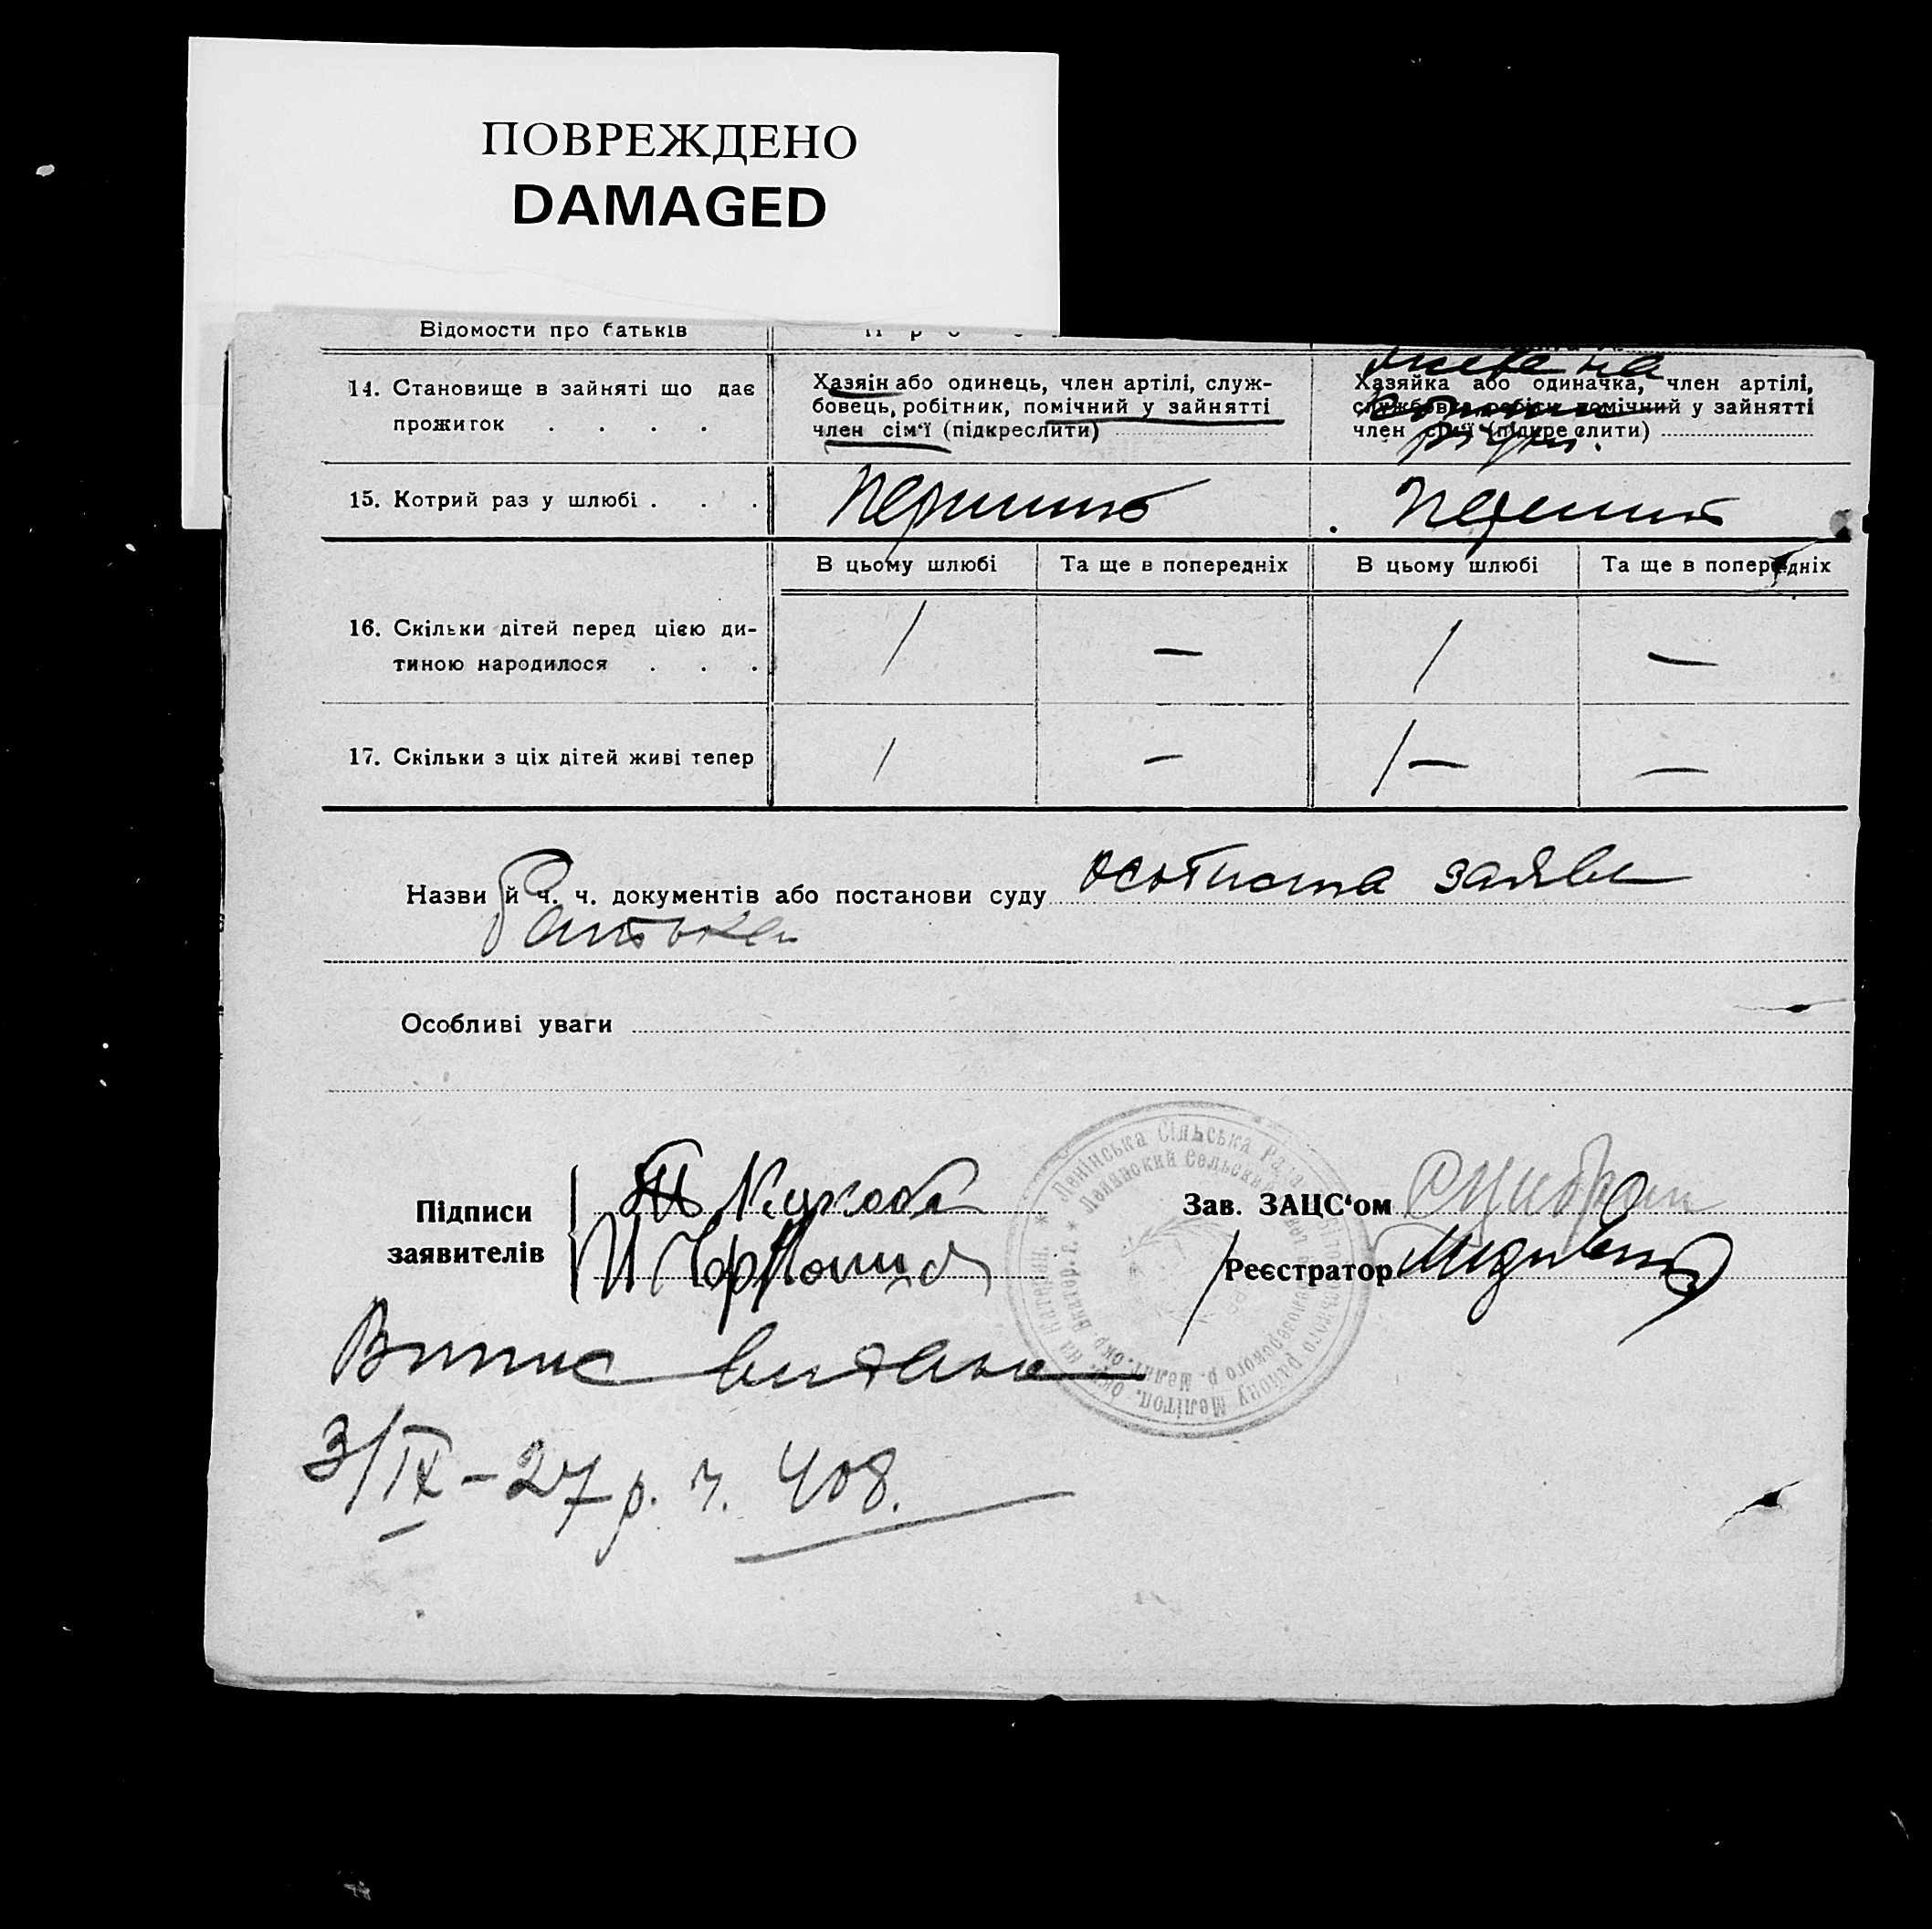 ПОВРЕЖДЕНО
DAMAGED
Відомости про батьків
14. Становище в зайняті що дає
прожиток . . . .
Хазяін або одинець, член артілі, служ-
бовець, робітник, помічний у зайнятті
член сім'ї (підкреслити)
живе на
Хазяйка або одиначка, член артілі,
службовка робітн помічний у зайнятті
член сім'ї (підкреслити)
15. Котрий раз у шлюбі . . .
перший
перший
В цьому шлюбі
Та ще в попередніх
В цьому шлюбі
Та ще в попередніх
16. Скільки дітей перед цією ди-
тиною народилося . . .
1
—
1
—
17. Скільки з ціх дітей живі тепер
1
—
1 —
—
Назви й ч. ч. документів або постанови суду особиста заява
батька
Особливі уваги
Підписи
заявителів
Зав. ЗАЦС‘ом
Реєстратор
Ленінська Сільська Рада
Випис видано
3/IX – 27 р. ч. 408.